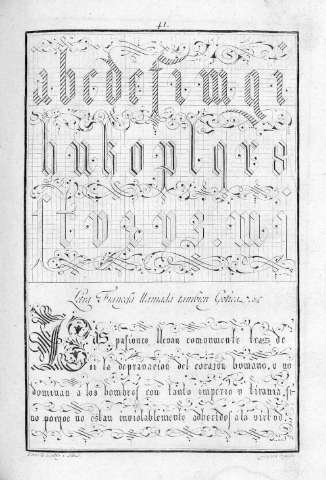 41.
a b c d e f i m g i
h u k o p l q r s
ſ t v x y z . m i
Letra Francesa llamada tambien Gotica. &c
Las pasiones llevan comunmente tras de
si la depravacion del corazon humano, y no
dominan a los hombres con tanto imperio y tirania, si
no porque no estan inviolablemente adheridos a la virtud.